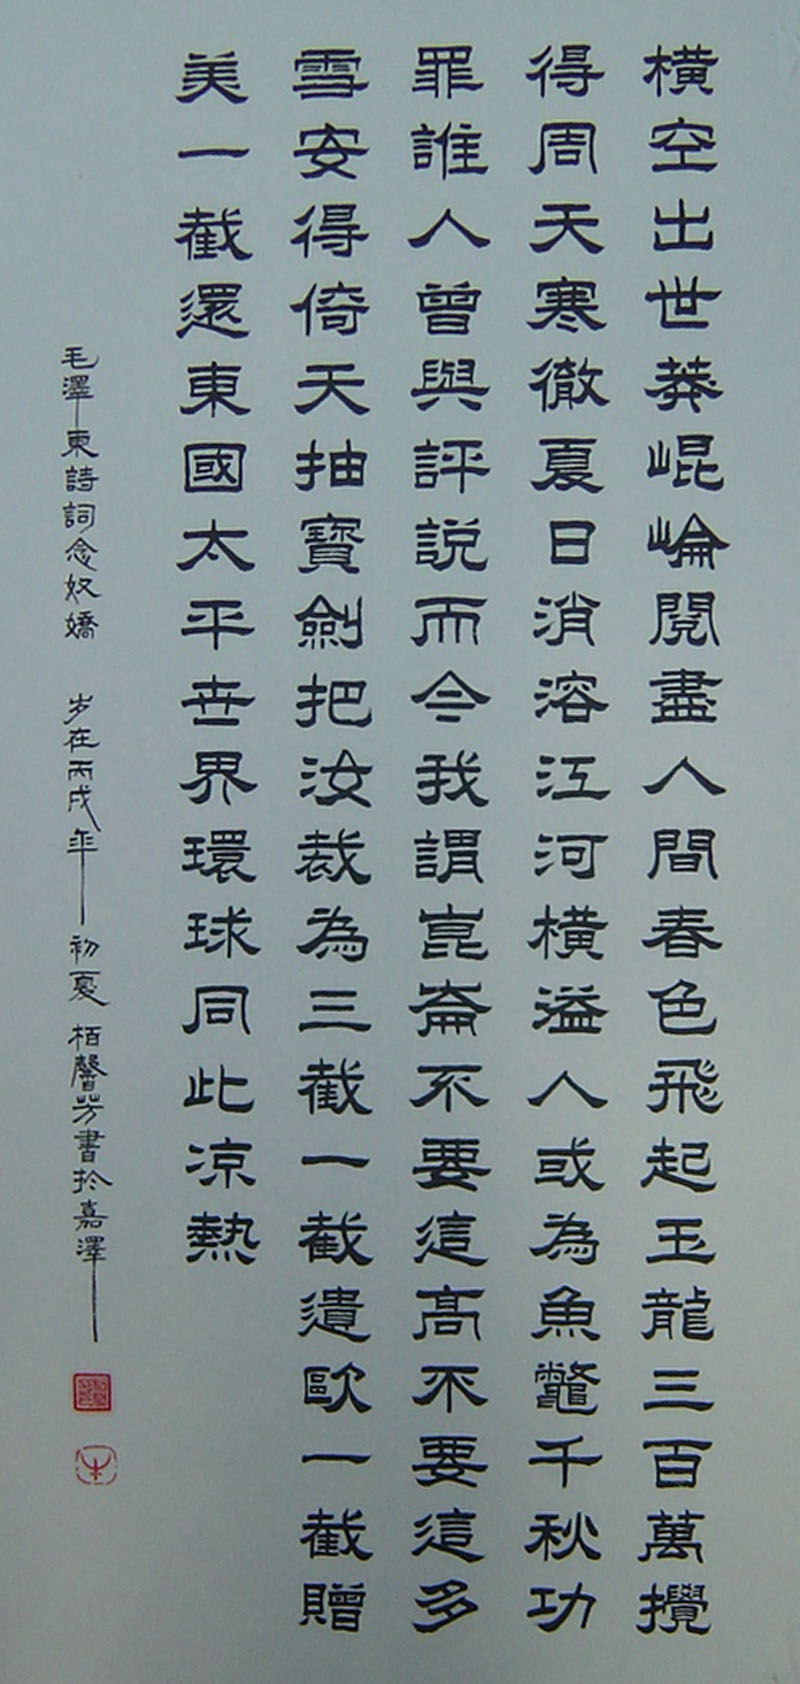 橫空出世莽崐崘閱盡人間春色飛起玉龍三百萬攪
得周天寒徹夏日消溶江河橫溢人或為魚鼈千秋功
罪誰人曾與評説而今我謂崑崙不要這高不要這多
雪安得倚天抽寶劍把汝裁為三截一截遺歐一截贈
美一截還東國太平世界環球同此凉熱
毛澤東詩詞念奴嬌 岁在丙戌年初夏 栢馨芳書於嘉澤